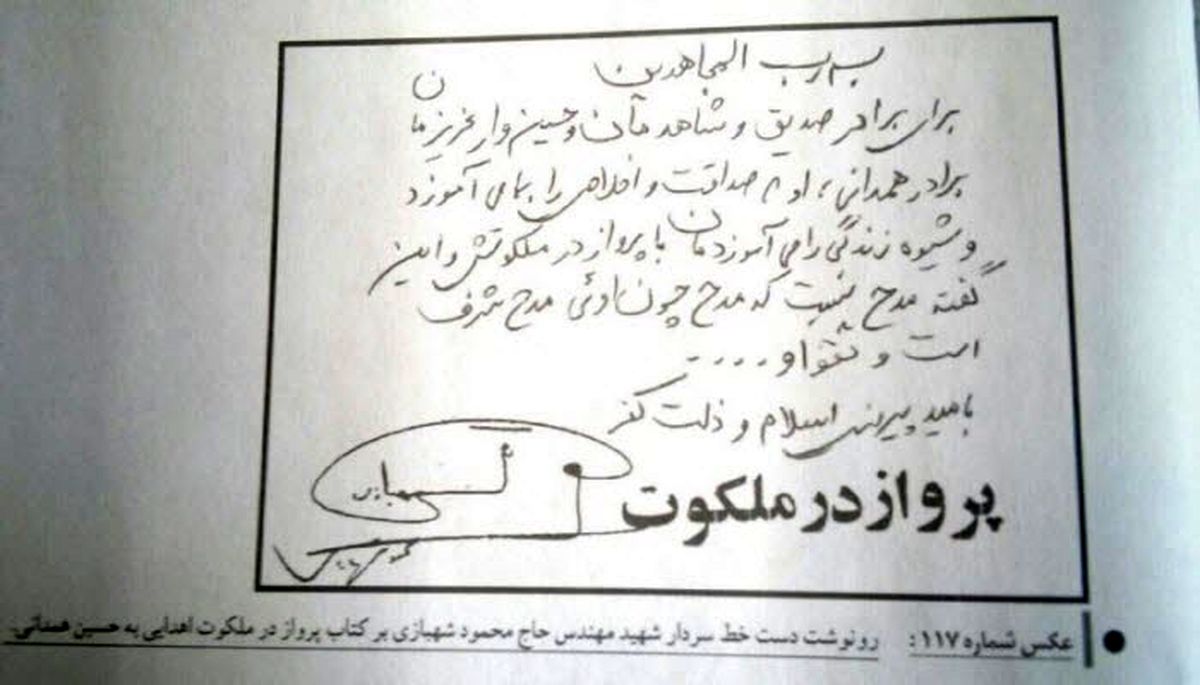 به رب المجاهدین
برای برادر صدیق و شاهدمان و حسین وار عزیزمان
برادر همدانی، او که صداقت و اخلاص را بما می آموزد
و شیوه زندگی را می آموزدمان با پرواز در ملکوتش و این
گفته مدح نیست که مدح چون اوئی مدح شرف
است و تقوا و ....
بامید پیروزی اسلام و ذلت کفر
شهبازی
پرواز در ملکوت
عکس شماره ۱۱۷: رونوشت دست خط سردار شهید مهندس حاج محمود شهبازی بر کتاب پرواز در ملکوت اهدایی به حسین همدانی.